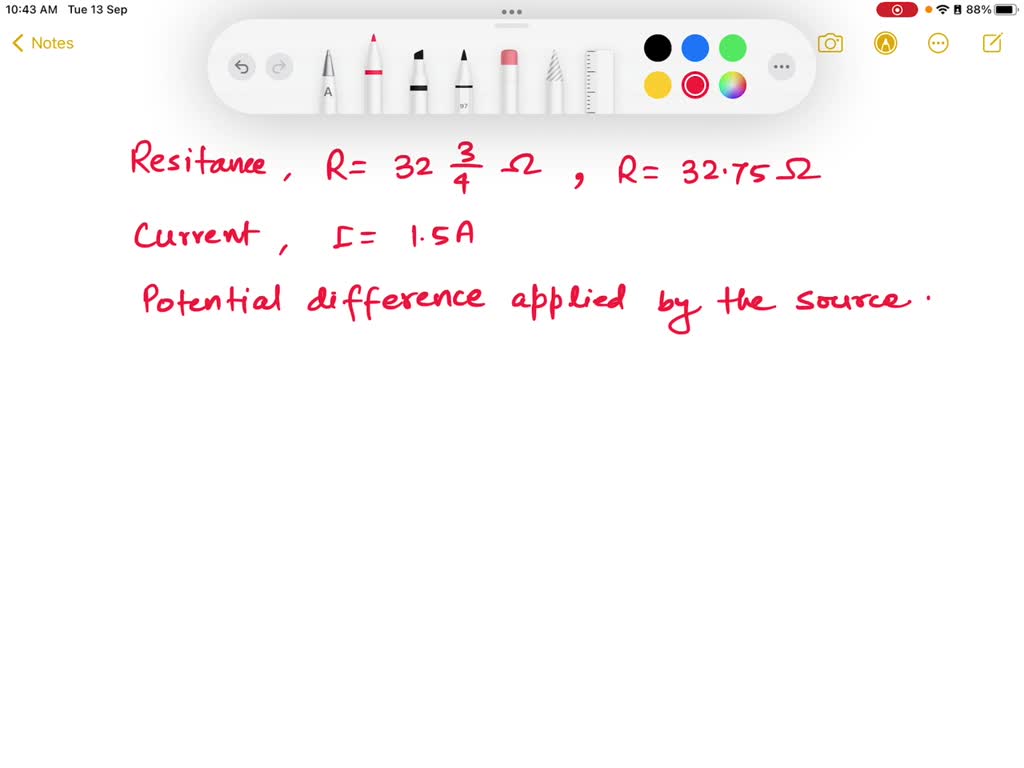 10:43 AM Tue 13 Sep
88%
Notes
A
97
Resitance, R = 32 3/4 Ω, R = 32.75 Ω
Current, I = 1.5 A
Potential difference applied by the source.